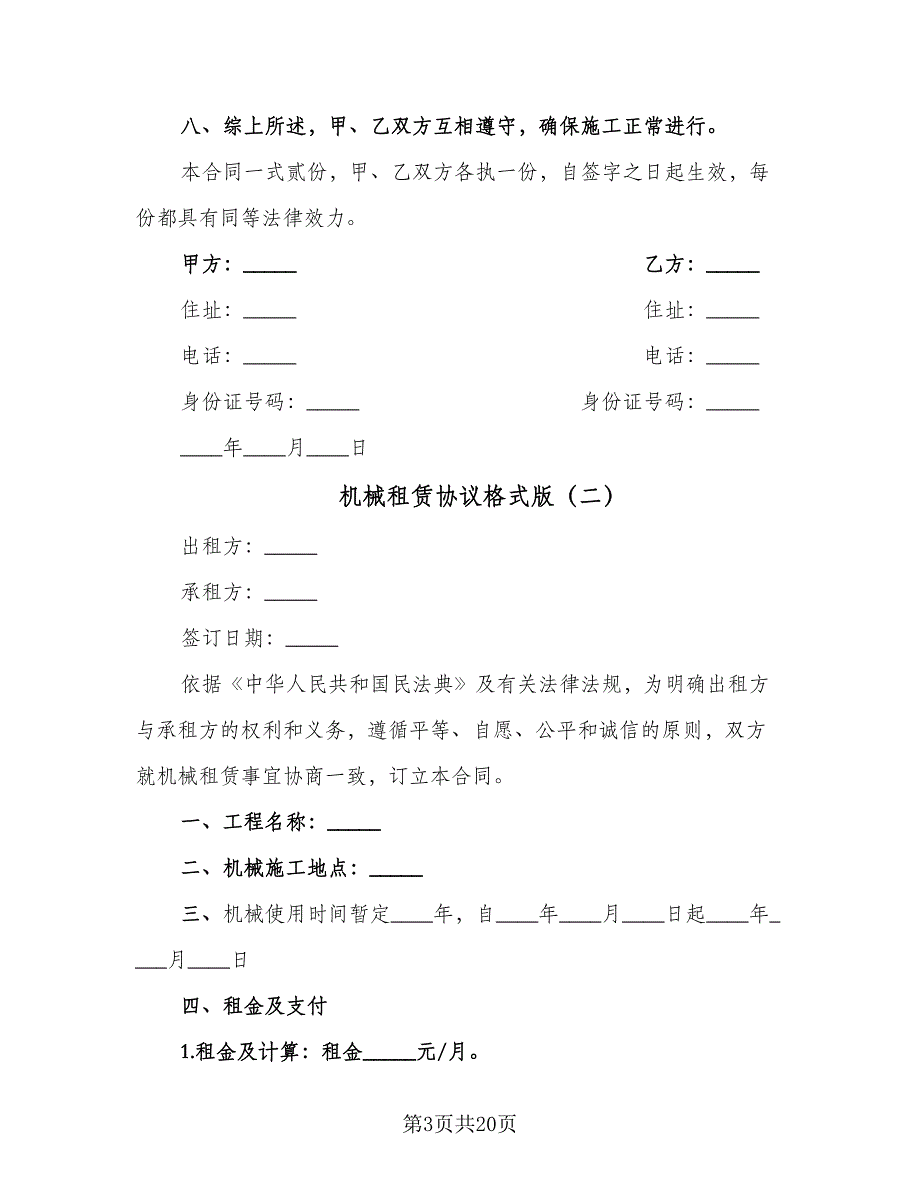 八、综上所述，甲、乙双方互相遵守，确保施工正常进行。
本合同一式贰份，甲、乙双方各执一份，自签字之日起生效，每
份都具有同等法律效力。
甲方：_____ 乙方：_____
住址：_____ 住址：_____
电话：_____ 电话：_____
身份证号码：_____ 身份证号码：_____
____年____月____日
机械租赁协议格式版（二）
出租方：_____
承租方：_____
签订日期：_____
依据《中华人民共和国民法典》及有关法律法规，为明确出租方
与承租方的权利和义务，遵循平等、自愿、公平和诚信的原则，双方
就机械租赁事宜协商一致，订立本合同。
一、工程名称：_____
二、机械施工地点：_____
三、机械使用时间暂定____年，自____年____月____日起____年_
___月____日
四、租金及支付
1.租金及计算：租金_____元/月。
第3页共20页